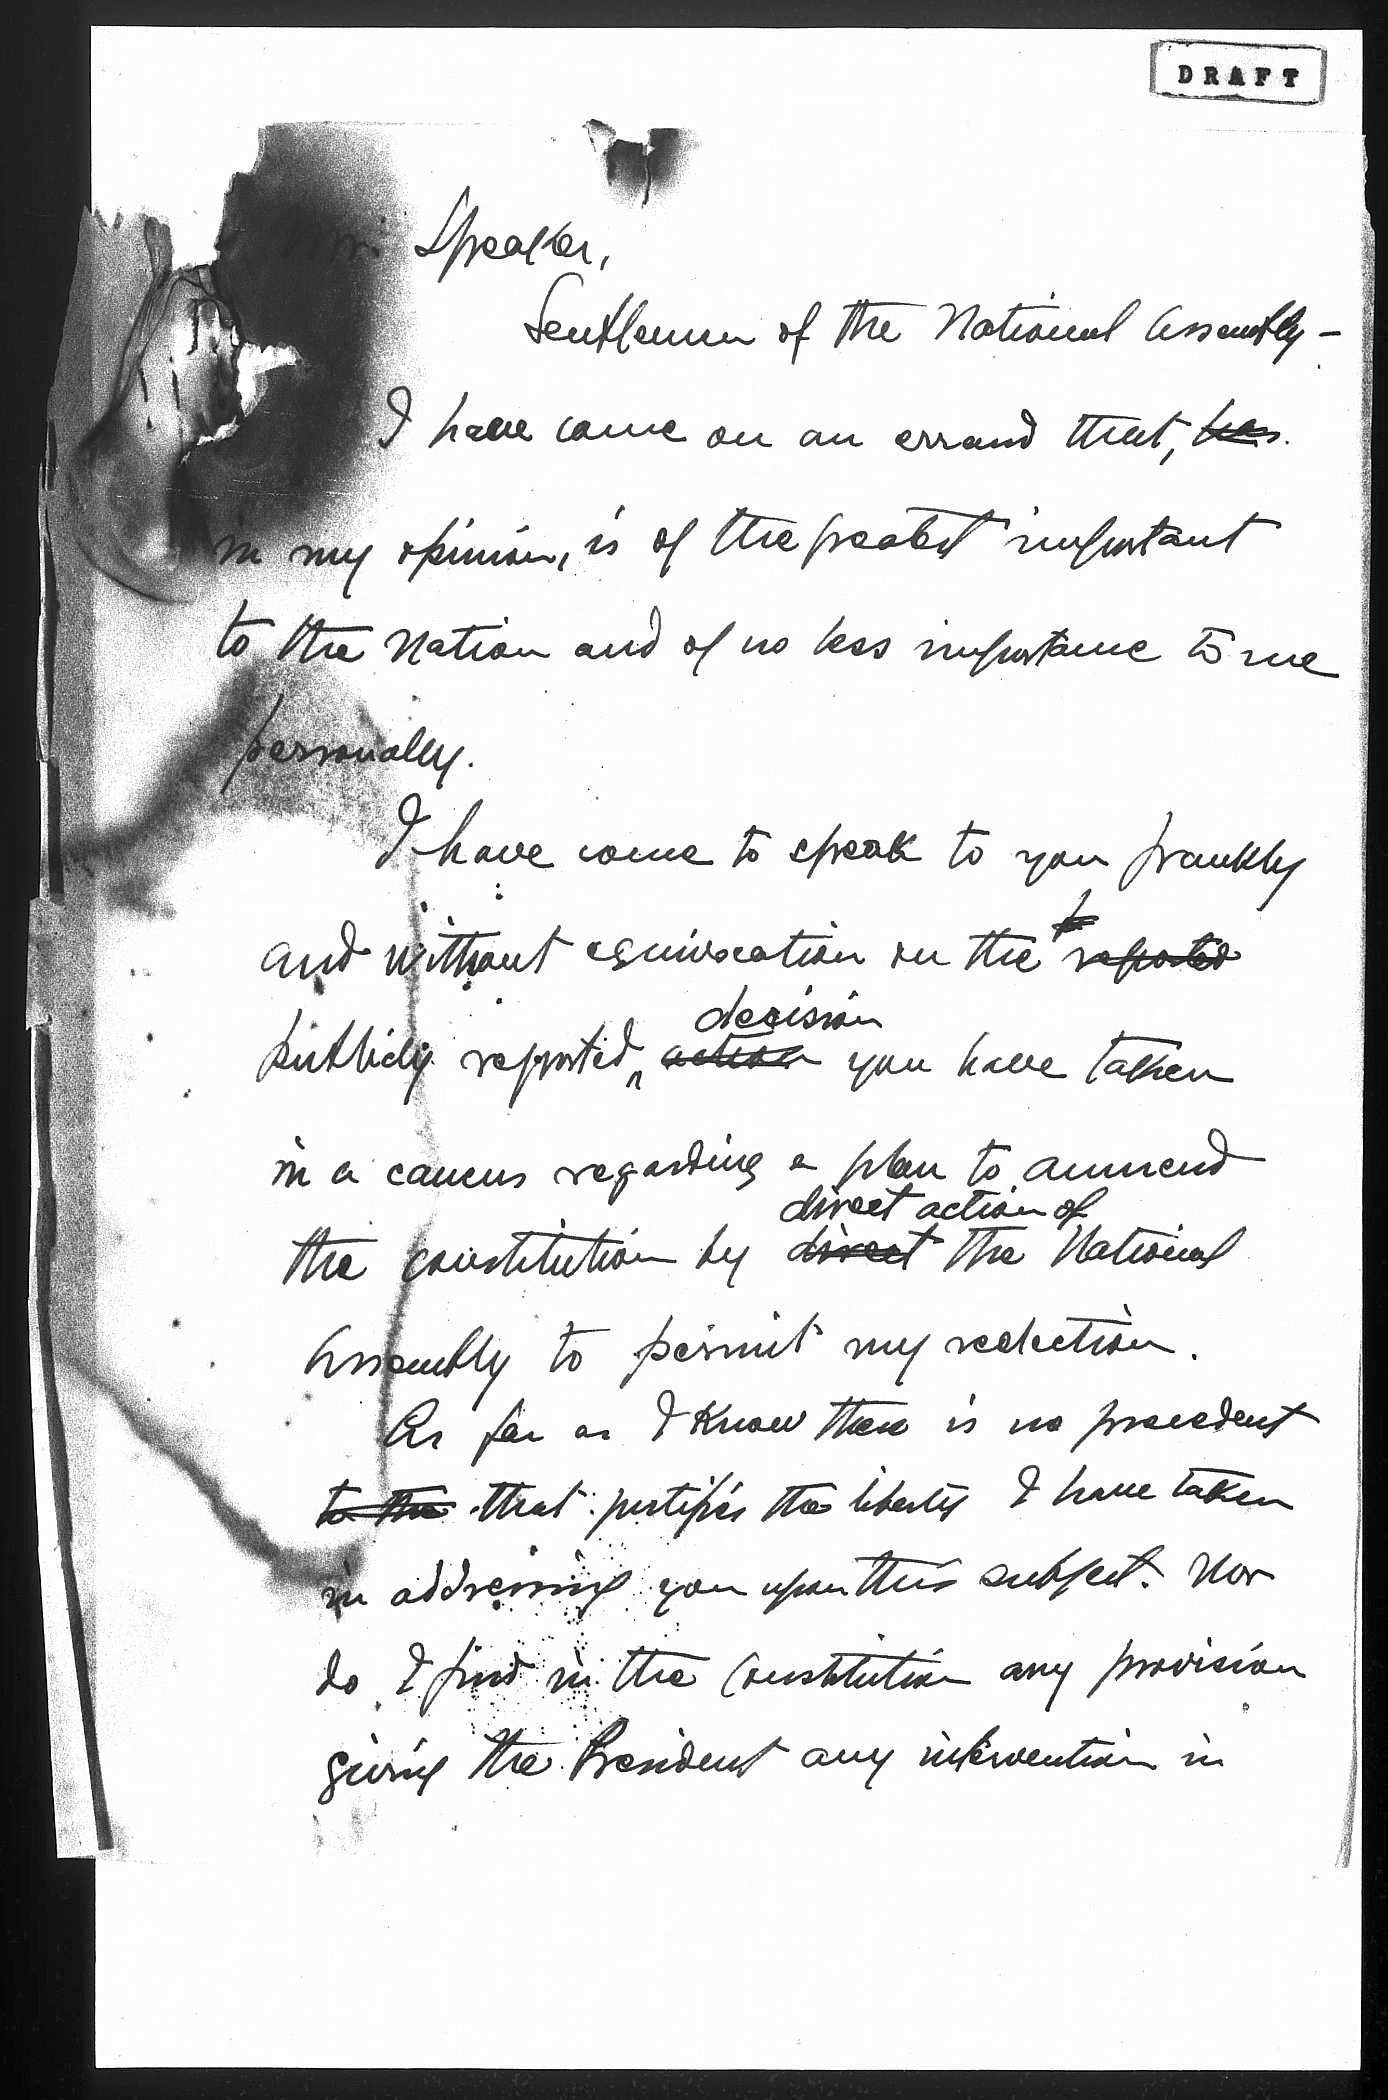 DRAFT
Mr. Speaker,
Gentlemen of the National Assembly –
I have come on an errand that, has
in my opinion, is of the greatest important
to the Nation and of no less importance to me
personally.
I have come to speak to you frankly
and without equivocation on the reported
decision
publicly reported, action you have taken
in a caucus regarding a plan to ammend
direct action of
the constitution by direct the National
Assembly to permit my reelection.
As far as I know there is no precedent
to the that justifies the liberty I have taken
in addressing you upon this subject. Nor
do I find in the Constitution any provision
giving the President any intervention in